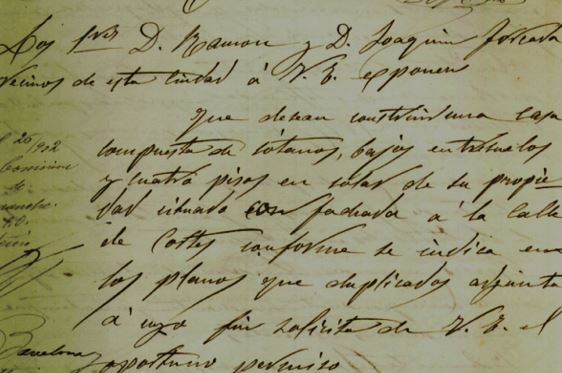 Los Sres D. Ramon y D. Joaquin Forcada
vecinos de esta Ciudad á V. E. exponen
Que desean construir una casa
compuesta de sótanos, bajos entresuelos
y cuatro pisos en solar de su propie
dad situado con fachada á la Calle
de Cortes conforme se indica en
los planos que duplicados adjunta
á cuyo fin solicita de V. E. el
oportuno permiso
26
902
Barcelona